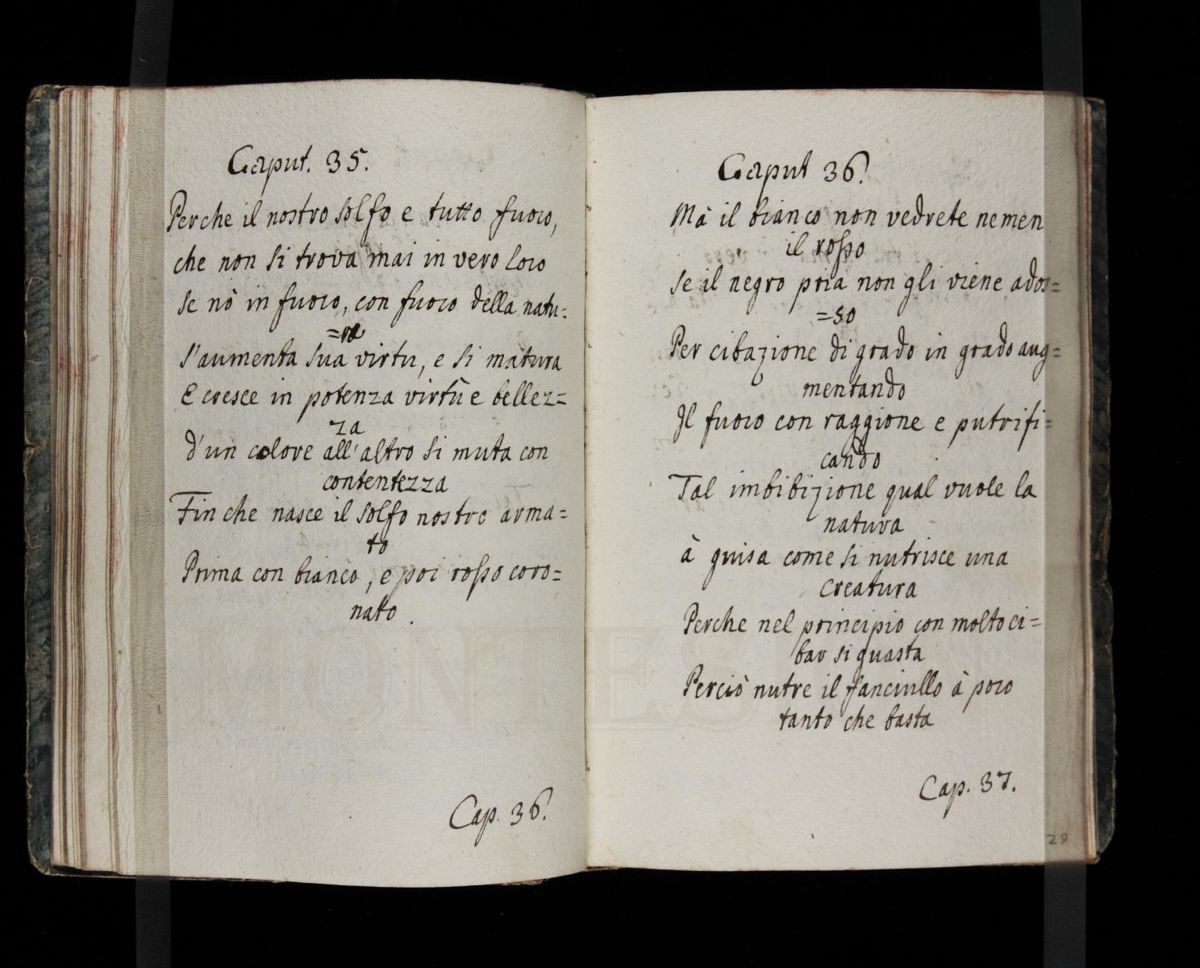 Caput. 35.
Perche il nostro solfo e tutto fuoco,
che non si trova mai in vero loco
se nò in fuoco, con fuoco della natu:
=ra
s'aumenta sua virtu, e si matura
E cresce in potenza virtù e bellez=
za
d'un colore all'altro si muta con
contentezza
Fin che nasce il solfo nostro arma=
to
Prima con bianco, e poi rosso coro=
nato.
Cap. 36.
Caput 36.
Mà il bianco non vedrete nemen
il rosso
se il negro pria non gli viene ados=
=so
Per cibazione di grado in grado aug=
mentando
Il fuoco con raggione e putrifi=
cando
Tal imbibizione qual vuole la
natura
à guisa come si nutrisce una
creatura
Perche nel principio con molto ci=
bar si guasta
Perciò nutre il fanciullo à poco
tanto che basta
Cap. 37.
28